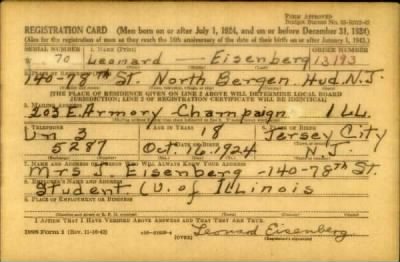 FORM APPROVED
REGISTRATION CARD—(Men born on or after July 1, 1924, and on or before December 31, 1924)
(Also for the registration of men as they reach the 18th anniversary of the date of their birth on or after January 1, 1943.)
SERIAL NUMBER 1. NAME (Print) ORDER NUMBER
70 Leonard — Eisenberg 13193
140-78th St. North Bergen Hud. N.J.
(THE PLACE OF RESIDENCE GIVEN ON LINE 2 ABOVE WILL DETERMINE LOCAL BOARD
JURISDICTION; LINE 2 OF REGISTRATION CERTIFICATE WILL BE IDENTICAL)
3. MAILING ADDRESS
203 E. Armory Champaign Ill.
4. TELEPHONE 5. AGE IN YEARS 6. PLACE OF BIRTH
3 18 Jersey City
DATE OF BIRTH
5287 Oct. 16. 1924 N.J.
7. NAME AND ADDRESS OF PERSON WHO WILL ALWAYS KNOW YOUR ADDRESS
Mrs J. Eisenberg -140-78th St.
8. EMPLOYER'S NAME AND ADDRESS
Student (U. of Illinois
9. PLACE OF EMPLOYMENT OR BUSINESS
I AFFIRM THAT I HAVE VERIFIED ABOVE ANSWERS AND THAT THEY ARE TRUE.
DSS Form 1 (Rev. 11-16-42) (OVER) Leonard Eisenberg